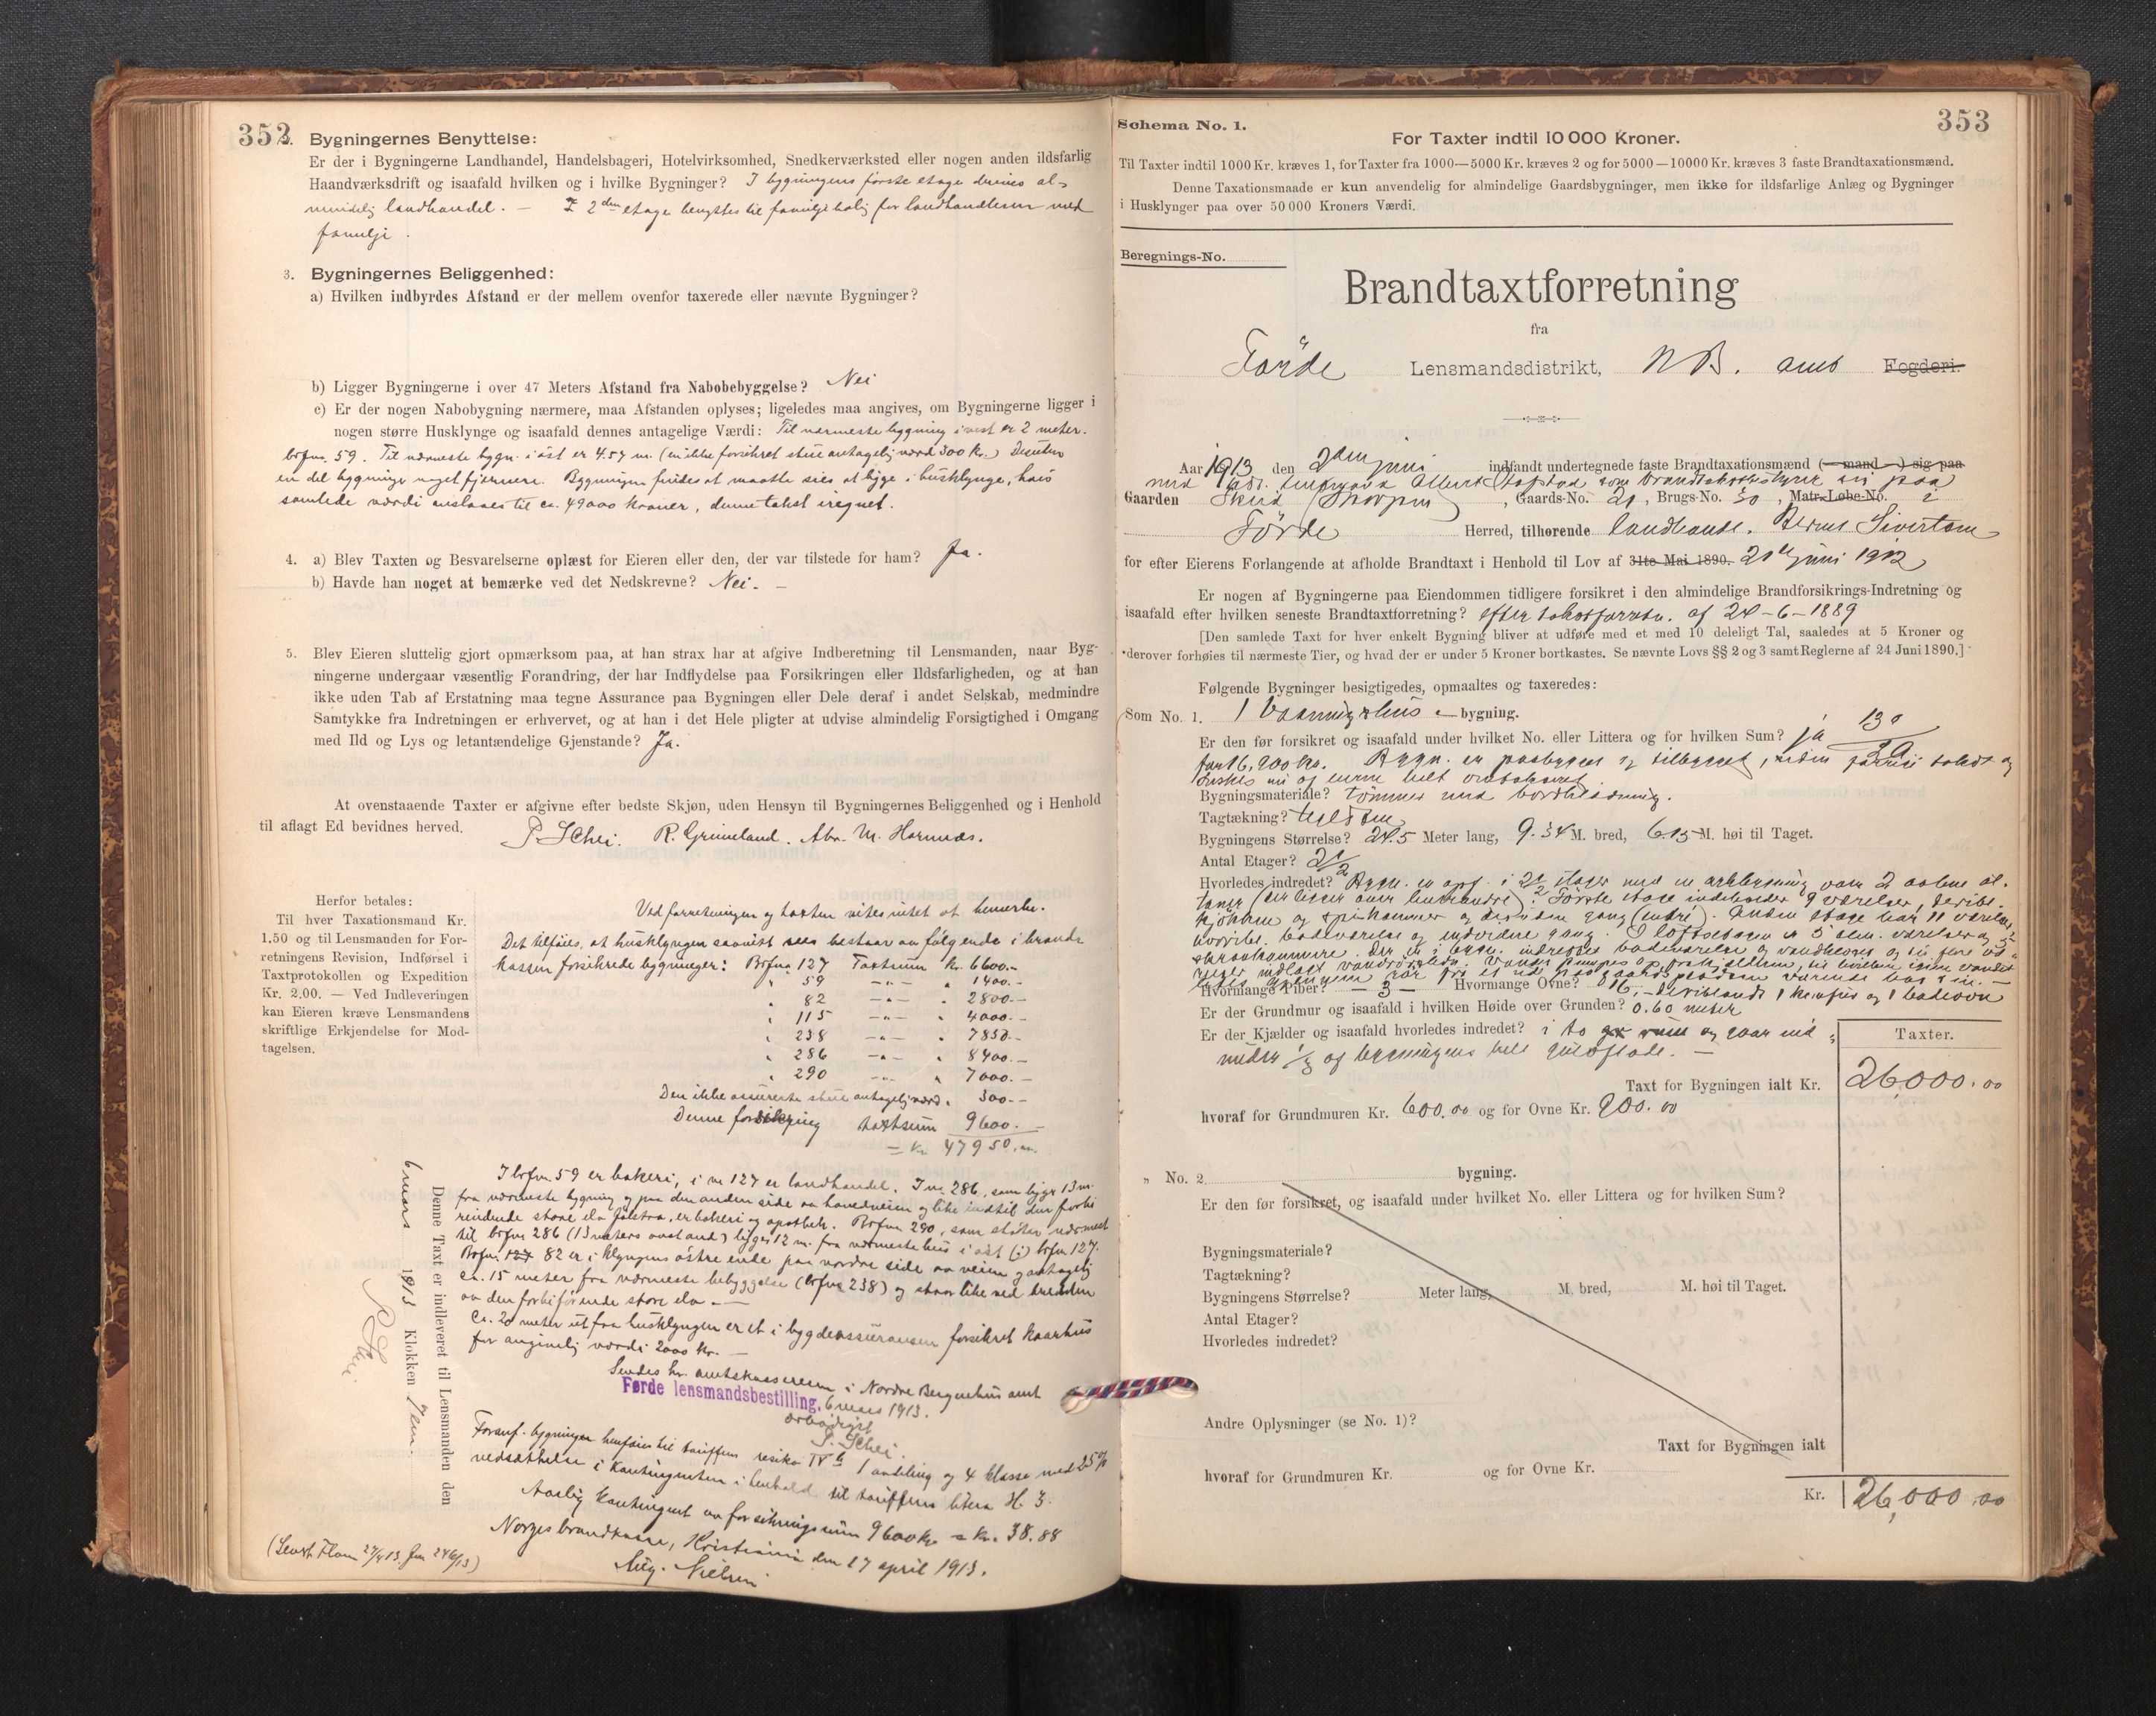 352
2. Bygningernes Benyttelse:
Er der i Bygningerne Landhandel, Handelsbageri, Hotelvirksomhed, Snedkerværksted eller nogen anden ildsfarlig
Haandværksdrift og isaafald hvilken og i hvilke Bygninger? I bygningens første etage drives al-
mindelig landhandel. — I 2den etage benyttes til familjebolig for landhandleren med
familje.
3. Bygningernes Beliggenhed:
a) Hvilken indbyrdes Afstand er der mellem ovenfor taxerede eller nævnte Bygninger?
b) Ligger Bygningerne i over 47 Meters Afstand fra Nabobebyggelse? Nei
c) Er der nogen Nabobygning nærmere, maa Afstanden oplyses; ligeledes maa angives, om Bygningerne ligger i
nogen større Husklynge og isaafald dennes antagelige Værdi: Til nærmeste bygning i vest er 2 meter.
brfnr. 59. Til nærmeste bygn. i øst er 4.57 m. (en ikke forsikret stue antagelig værd 300 kr.) Desuten
en del bygninge noget fjernere. Bygningen findes at maatte sies at ligge i husklynge, hvis
samlede værdi anslaaes til ca. 49000 kroner, denne takst iregnet.
4. a) Blev Taxten og Besvarelserne oplæst for Eieren eller den, der var tilstede for ham? Ja.
b) Havde han noget at bemærke ved det Nedskrevne? Nei. —
5. Blev Eieren sluttelig gjort opmærksom paa, at han strax har at afgive Indberetning til Lensmanden, naar Byg-
ningerne undergaar væsentlig Forandring, der har Indflydelse paa Forsikringen eller Ildsfarligheden, og at han
ikke uden Tab af Erstatning maa tegne Assurance paa Bygningen eller Dele deraf i andet Selskab, medmindre
Samtykke fra Indretningen er erhvervet, og at han i det Hele pligter at udvise almindelig Forsigtighed i Omgang
med Ild og Lys og letantændelige Gjenstande? Ja.
At ovenstaaende Taxter er afgivne efter bedste Skjøn, uden Hensyn til Bygningernes Beliggenhed og i Henhold
til aflagt Ed bevidnes herved. P Schei. R. Grimeland. Abr. M. Hornnes.
Herfor betales:
Til hver Taxationsmand Kr.
1.50 og til Lensmanden for For-
retningens Revision, Indførsel i
Taxtprotokollen og Expedition
Kr. 2.00. — Ved Indleveringen
kan Eieren kræve Lensmandens
skriftlige Erkjendelse for Mod-
tagelsen.
Ved forretningen og taxten vites intet at bemerke.
Det tilføies, at husklyngen saavidt sees bestaar av følgende i brand-
kassen forsikrede bygninger: Brfnr. 127 Taxtsum kr. 6600.-
" 59 —"— " 1400.-
" 82 —"— " 2800.-
" 115 —"— " 4000.-
" 238 —"— " 7850.-
" 286 —"— " 8400.-
" 290 —"— " 7000.-
Den ikke assurerte stue antagelig værd. 300.-
Denne forsikring taxtsum 9600.-
= kr. 47950.
I brfnr. 59 er bakeri, i nr 127 er landhandel. I nr. 286, som ligger 13 m.
fra nærmeste bygning og paa den anden side av hovedveien og like indtil den forbi
rindende store elv Jølstra, er bakeri og apothek. Brfnr 290, som støter nærmest
til brfnr 286 (13 meters avstand) ligger 12 m. fra nærmeste hus i øst (:) brfnr 127.
Brfnr. 127 82 er i klyngens østre ende paa nordre side av veien og antagelig
ca. 15 meter fra nærmeste bebyggelse (brfnr 238) og staar like ved bredden
av den forbiførende store elv. —
Ca. 20 meter ut fra husklyngen er et i bygdeassurancen forsikret kaarhus
for angivelig værdi 2000 kr. —
Sendes hr. amtskassereren i Nordre Bergenhus amt
Førde lensmandsbestilling, 6 mars 1913.
ærbødigst
P. Schei.
Foranf. bygninger henføres til tariffens risiko IV b 1 avdeling og 4 klasse med 25%
nedsættelse i kontingenten i henhold til tariffens litera H. 3.
Aarlig kontingent av forsikringssum 9600 kr = kr. 38.88
Norges brandkasse, Kristiania den 17 april 1913.
Aug. Nielsen
Denne Taxt er indleveret til Lensmanden den
6 mars 1913 Klokken
P Schei
353
Schema No. 1.
For Taxter indtil 10 000 Kroner.
Til Taxter indtil 1000 Kr. kræves 1, for Taxter fra 1000—5000 Kr. kræves 2 og for 5000—10000 Kr. kræves 3 faste Brandtaxationsmænd.
Denne Taxationsmaade er kun anvendelig for almindelige Gaardsbygninger, men ikke for ildsfarlige Anlæg og Bygninger
i Husklynger paa over 50 000 Kroners Værdi.
Beregnings-No.
Brandtaxtforretning
fra
Førde Lensmandsdistrikt, N B. amt Fogderi.
Aar 1913 den 2den juni indfandt undertegnede faste Brandtaxationsmænd (— mand —) sig paa
som brandtakstbestyrer sig paa
Gaarden Gaards-No. 21, Brugs-No. 30, Matr. Løbe-No. i
Førde Herred, tilhørende landhandl. Bernt Sivertsen
for efter Eierens Forlangende at afholde Brandtaxt i Henhold til Lov af 31te Mai 1890. 21de juni 1912
Er nogen af Bygningerne paa Eiendommen tidligere forsikret i den almindelige Brandforsikrings-Indretning og
isaafald efter hvilken seneste Brandtaxtforretning? efter takstforretn. af 24-6-1889
[Den samlede Taxt for hver enkelt Bygning bliver at udføre med et med 10 deleligt Tal, saaledes at 5 Kroner og
derover forhøies til nærmeste Tier, og hvad der er under 5 Kroner bortkastes. Se nævnte Lovs §§ 2 og 3 samt Reglerne af 24 Juni 1890.]
Følgende Bygninger besigtigedes, opmaaltes og taxeredes:
Som No. 1. 1 Vaaningshus - bygning.
Er den før forsikret og isaafald under hvilket No. eller Littera og for hvilken Sum? ja 130
for 16,900 kr. Bygn. er paabygget og tilbygget, siden forrige takst og
Bygningsmateriale? tømmer med bordklædning.
Tagtækning? teglsten
Bygningens Størrelse? 24.5 Meter lang, 9.34 M. bred, 6.15 M. høi til Taget.
Antal Etager? 2 1/2
Hvorledes indredet? Bygn. er opf. i 2 1/2 etager med en arkbygning samt 2 aabne al-
taner (der ligger over hverandre). Første etage indeholder 9 værelser, deribl.
kjøkken og spiskammer og desuden gang (entré). Anden etage har 11 værelser,
hvoribl. badeværelse og indvendig gang. I loftsetagen er 5 alm. værelser og
Hvormange Piber? — 3 — Hvormange Ovne? 16, — deriblandt 1 komfur og 1 badeovn
Er der Grundmur og isaafald i hvilken Høide over Grunden? 0.60 meter
Er der Kjælder og isaafald hvorledes indredet? i to rum og gaar ind
under 1/3 af bygningens hele gulvflade. —
Taxter.
Taxt for Bygningen ialt Kr. 26,000.00
hvoraf for Grundmuren Kr. 600.00 og for Ovne Kr. 900.00
" No. 2. bygning.
Er den før forsikret, og isaafald under hvilket No. eller Littera og for hvilken Sum?
Bygningsmateriale?
Tagtækning?
Bygningens Størrelse? Meter lang, M. bred, M. høi til Taget.
Antal Etager?
Hvorledes indredet?
Andre Oplysninger (se No. 1)?
Taxt for Bygningen ialt
hvoraf for Grundmuren Kr. og for Ovne Kr.
Kr. 26,000.00